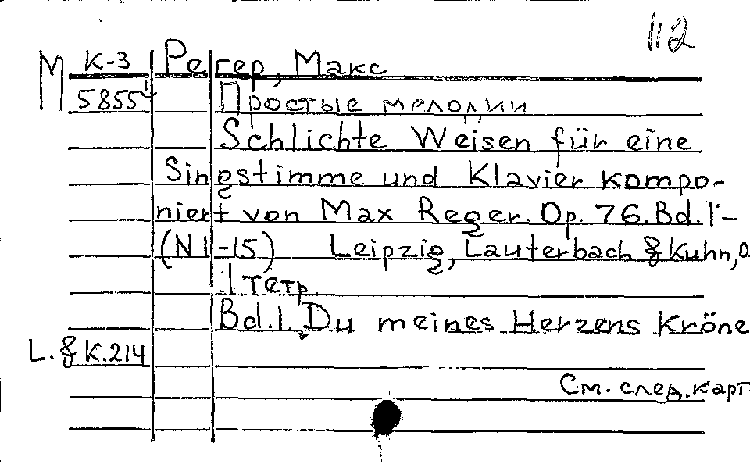 112
М К-3 Регер, Макс
5855 Простые мелодии
Schlichte Weisen für eine
Singstimme und Klavier kompo-
niert von Max Reger. Op. 76. Bd. I-
(N 1-15) Leipzig, Lauterbach & Kuhn, o
1 тетр.
Bd. 1. Du meines Herzens Krone
L. & K. 214
См. след. карт